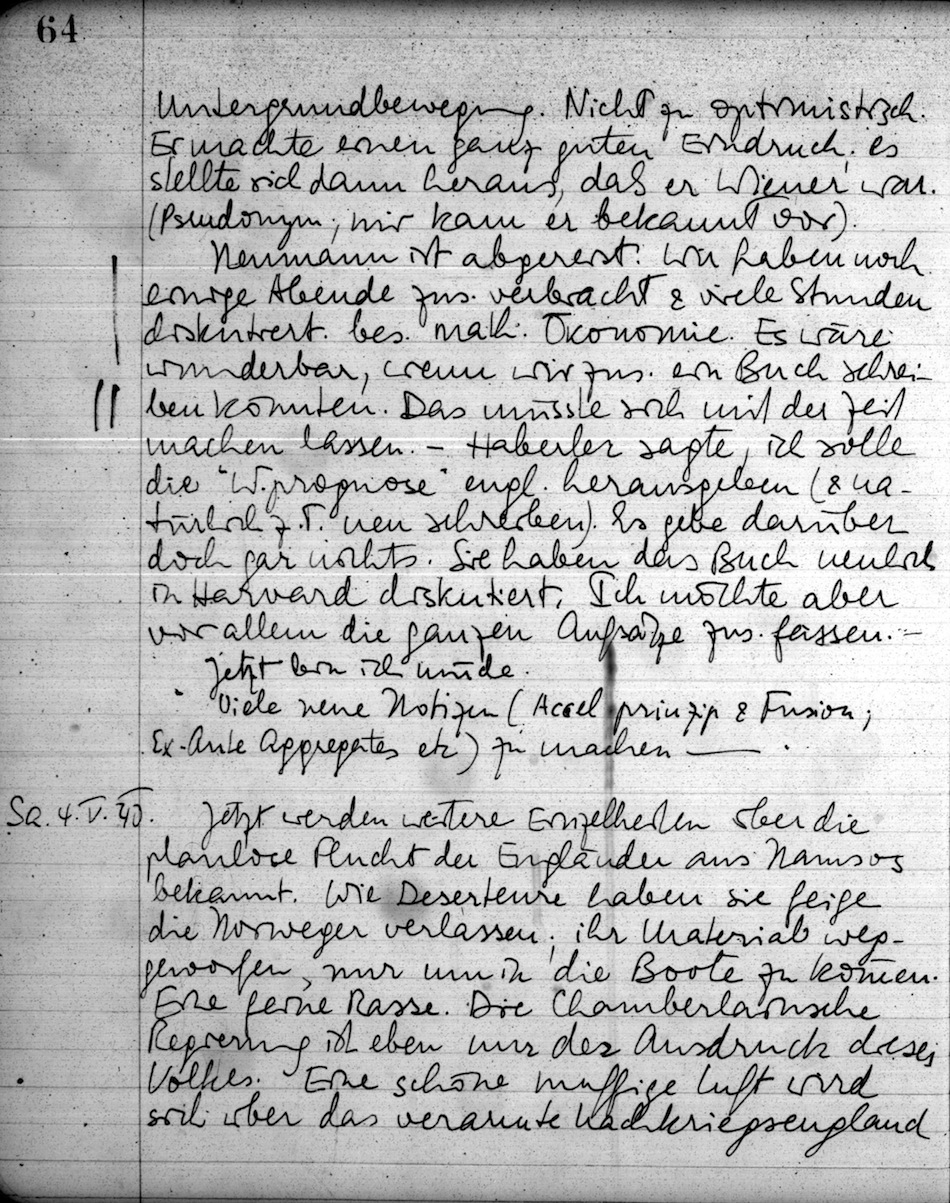 64
Untergrundbewegung. Nicht zu optimistisch.
Er machte einen ganz guten Eindruck; es
stellte sich dann heraus, daß er Wiener war.
(Pseudonym; mir kam er bekannt vor).
Neumann ist abgereist. Wir haben noch
einige Abende zus. verbracht & viele Stunden
diskutiert. bes. math. Ökonomie. Es wäre
wunderbar, wenn wir zus. ein Buch schrei-
ben könnten. Das müsste sich mit der Zeit
machen lassen. – Haberler sagte, ich solle
die "W.prognose" engl. herausgeben (& na-
türlich z.T. neu schreiben). Es gebe darüber
doch gar nichts. Sie haben das Buch neulich
in Harvard diskutiert. Ich möchte aber
vor allem die ganzen Aufsätze zus. fassen. –
Jetzt bin ich müde.
Viele neue Notizen (Accel prinzip & Fusion;
Ex-Ante Aggregates etc) zu machen —.
Sa. 4. V. 40. Jetzt werden weitere Einzelheiten über die
planlose Flucht der Engländer aus Namsos
bekannt. Wie Deserteure haben sie feige
die Norweger verlassen; ihr Material weg-
geworfen, nur um in die Boote zu kommen.
Eine feine Rasse. Die Chamberlainsche
Regierung ist eben nur der Ausdruck dieses
Volkes. Eine schöne muffige Luft wird
sich über das verarmte Nachkriegsengland